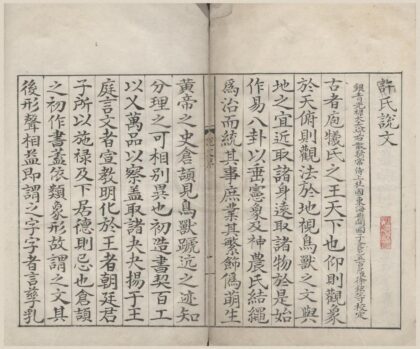 許氏說文
銀青光祿大夫守右散騎常侍上柱國東海縣開國子食邑五百戶徐鉉等校定
古者庖犧氏之王天下也仰則觀象
於天俯則觀法於地視鳥獸之文與
地之宜近取諸身遠取諸物於是始
作易八卦以垂憲象及神農氏結繩
爲治而統其事庶業其繁飾僞萌生
黃帝之史倉頡見鳥獸蹏迒之迹知
分理之可相別異也初造書契百工
以乂萬品以察蓋取諸夬夬揚于王
庭言文者宣教明化於王者朝廷君
子所以施祿及下居德則忌也倉頡
之初作書蓋依類象形故謂之文其
後形聲相益即謂之字字者言孳乳